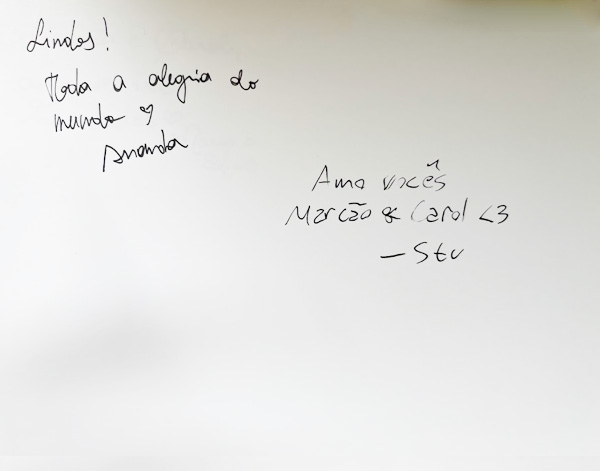 Lindos!
Toda a alegria do
mundo ♡
Ananda
Amo vocês
Marcão & Carol <3
— Stu